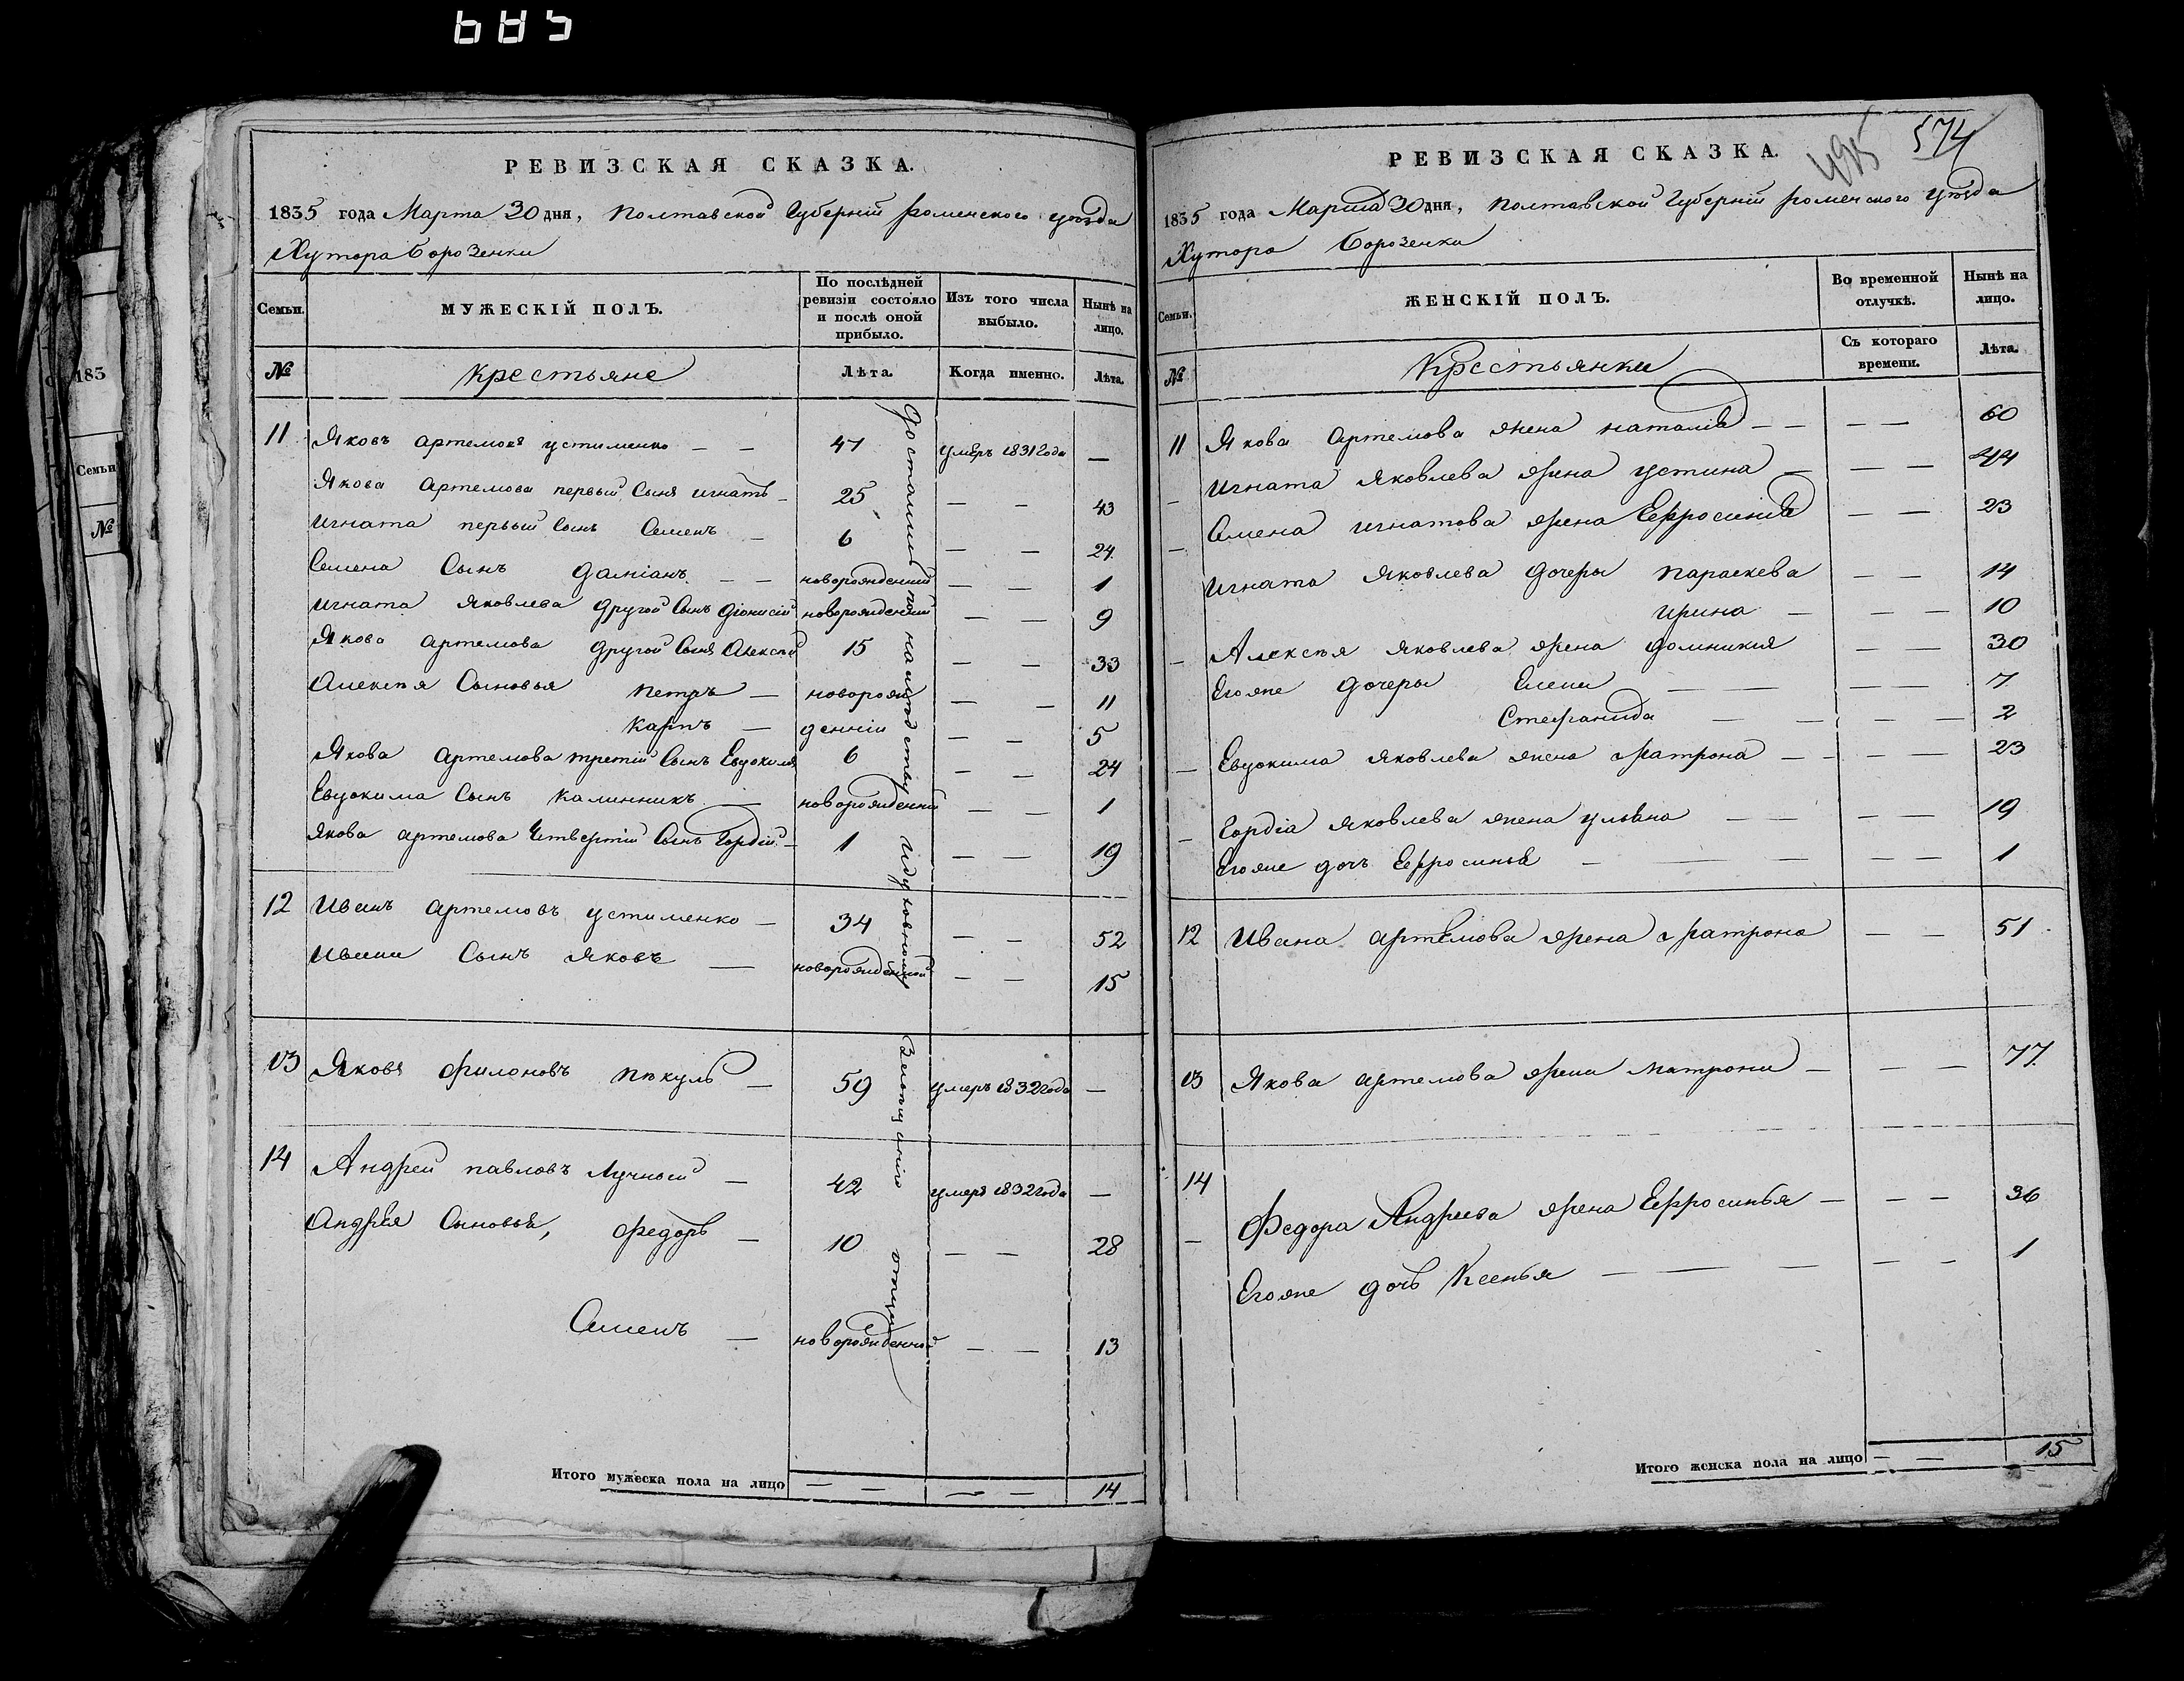 685
РЕВИЗСКАЯ СКАЗКА.
1835 года Марта 30 дня, Полтавской Губерніи роменского уѣзда
Хутора Борозенки
Семьи.
МУЖЕСКІЙ ПОЛЪ.
По послѣдней ревизіи состояло и послѣ оной прибыло.
Изъ того числа выбыло.
Нынѣ на лицо.
№
Крестьяне
Лѣта.
Когда именно.
Лѣта.
11 Яковъ артемовъ устименко — — 47 умеръ 1831 года —
Якова артемова первый Сынъ игнатъ — 25 — — 43
игната первый Сынъ Семенъ — 6 — — 24
Семена Сынъ даміанъ — — новорожденный — — 1
игната яковлева другой Сынъ діонисій новорожденный — — 9
Якова артемова другой Сынъ Алексѣй 15 — — 33
Алексѣя Сыновья петръ — новорож — — 11
карпъ — денніи — — 5
Якова артемова третій Сынъ Евдокимъ 6 — — 24
Евдокима Сынъ калинникъ — новорожденный — — 1
якова артемова Четвертій Сынъ Гордій — 1 — — 19
12 иванъ артемовъ устименко — 34 — — 52
ивана Сынъ яковъ — новорожденный — — 15
13 Яковъ филоновъ пѣкуль — 59 умеръ 1832 года —
14 Андрей павловъ Лучной — 42 умеръ 1832 года —
Андрея Сыновья, федоръ — 10 — — 28
Семенъ — новорожденной — — 13
Достались по наслѣдству и духовному
Итого мужеска пола на лицо — — — — 14
495 574
РЕВИЗСКАЯ СКАЗКА.
1835 года Марта 30 дня, Полтавской Губерніи роменского уѣзда
Хутора Борозенки
Семьи.
ЖЕНСКІЙ ПОЛЪ.
Во временной отлучкѣ.
Нынѣ на лицо.
№
Крестьянки
Съ котораго времени.
Лѣта.
11 Якова артемова жена наталія — — — — 60
игната яковлева жена устина — — — 44
Семена игнатова жена Ефросинія — — 23
игната яковлева дочеры параскева — — 14
ирина — — — 10
Алексѣя яковлева жена домникия — — 30
Егоже дочеры Елена — — — — 7
Стефанида — — — — 2
Евдокима яковлева жена матрона — — — — 23
Гордіа яковлева жена уліяна — — — — 19
Егоже дочъ Ефросинья — — — — — 1
12 ивана артемова жена матрона — — 51
13 Якова артемова жена матрона — — — 77
14 Федора Андреева жена Ефросинья — — — 36
Егоже дочъ Ксенья — — — — — 1
Итого женска пола на лицо — — 15
183
Семьи
№